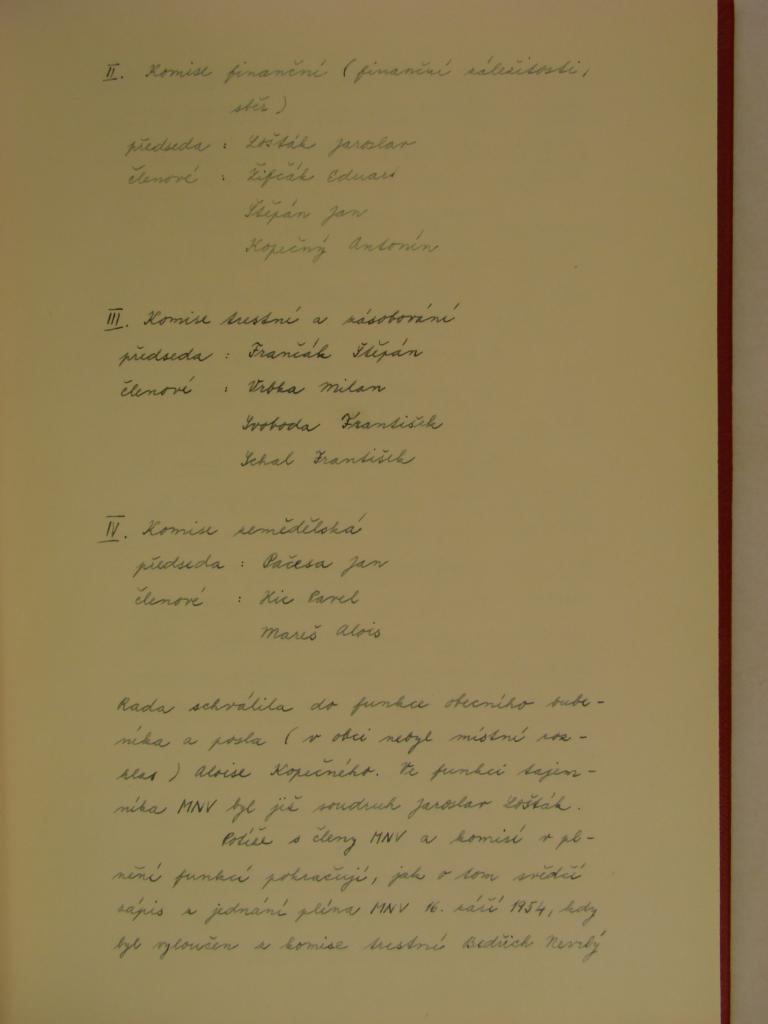 II. Komise finanční (finanční záležitosti,
sběr)
předseda : Lošťák Jaroslav
členové : Žifčák Eduard
Štěpán Jan
Kopečný Antonín
III. Komise trestní a zásobování
předseda : Frančák Štěpán
členové : Vrbka Milan
Svoboda František
Schal František
IV. Komise zemědělská
předseda : Pačesa Jan
členové : Hic Pavel
Mareš Alois
Rada schválila do funkce obecního bube-
níka a posla (v obci nebyl místní roz-
hlas) Aloise Kopečného. Ve funkci tajem-
níka MNV byl již soudruh Jaroslav Lošťák.
Potíže s členy MNV a komisí v pl-
nění funkcí pokračují, jak o tom svědčí
zápis z jednání pléna MNV 16. září 1954, kdy
byl vyloučen z komise trestní Bedřich Nevrlý